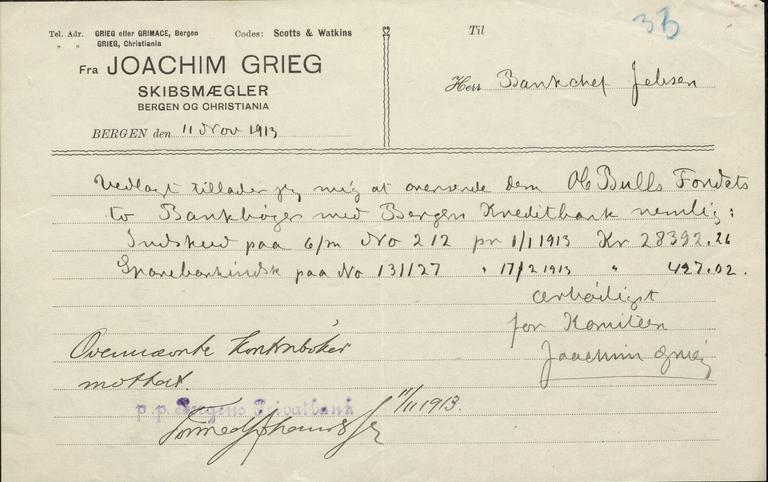 33
Tel. Adr. GRIEG eller GRIMACE, Bergen
" " GRIEG, Christiania
Codes: Scotts & Watkins
Fra JOACHIM GRIEG
SKIBSMÆGLER
BERGEN OG CHRISTIANIA
BERGEN den 11 Nov 1913
Til
Herr Bankchef Jebsen
Vedlagt tillader jeg mig at oversende dem Ole Bulls Fondets
to Bankbøger med Bergens Kreditbank nemlig:
Indskud paa 6/m No 212 pr 1/1 1913 Kr 28392.26
Sparebankindsk paa No 131127 " 17/2 1913 " 427.02.
ærbødigst
for Komiteen
Joachim Grieg
Ovennævnte kontrabøker
mottat.
11/11 1913.
p.p. Bergens Privatbank